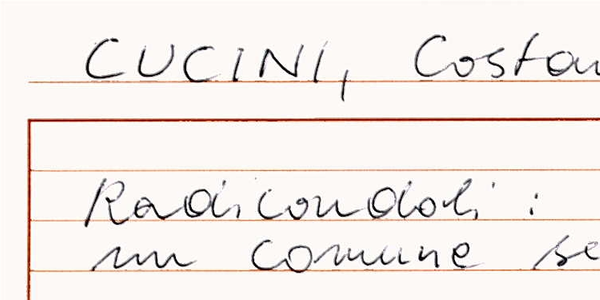 CUCINI, Costan
Radicondoli :
un comune se